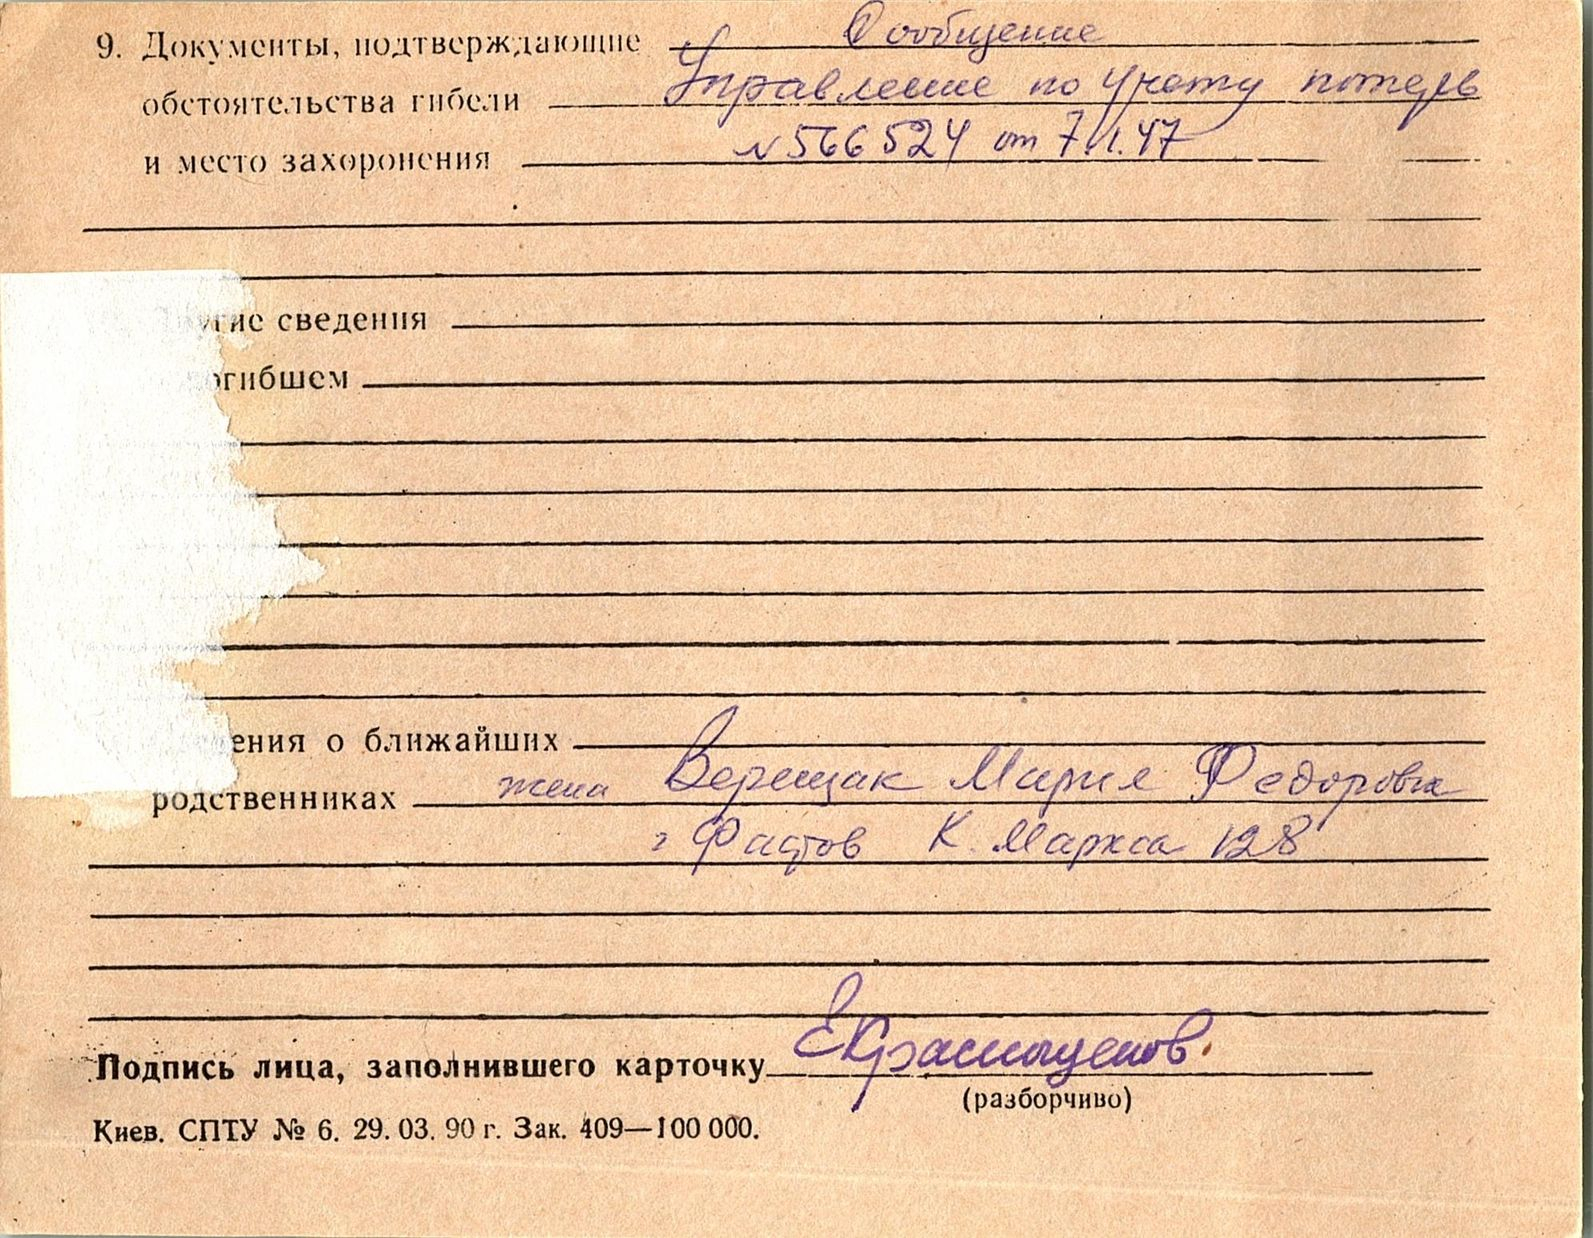 9. Документы, подтверждающие Сообщение
обстоятельства гибели Управление по учету потерь
и место захоронения № 566524 от 7.1.47
угие сведения
огибшем
ения о ближайших
родственниках жена Верещак Мария Федоровна
г Фастов К. Маркса 128
Подпись лица, заполнившего карточку
(разборчиво)
Киев. СПТУ № 6. 29. 03. 90 г. Зак. 409—100 000.